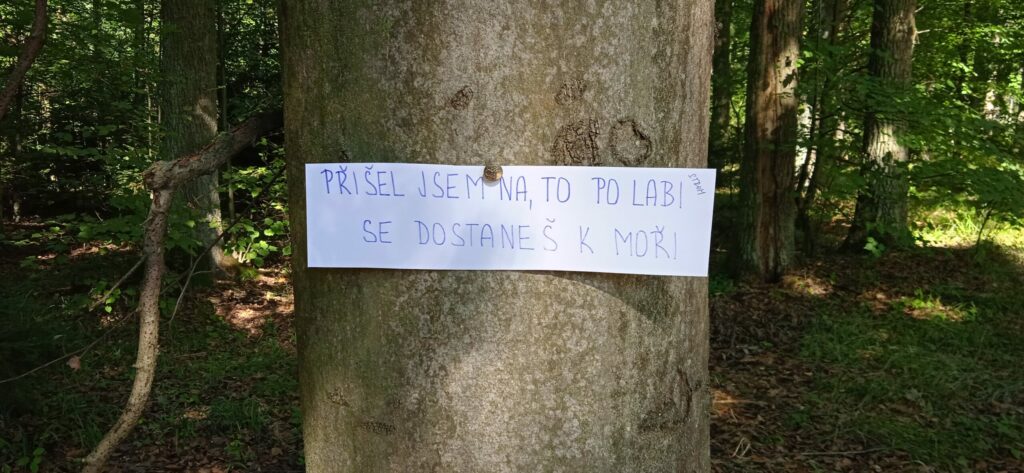 PŘIŠEL JSEM NA, TO PO LABI
SE DOSTANEŠ K MOŘI